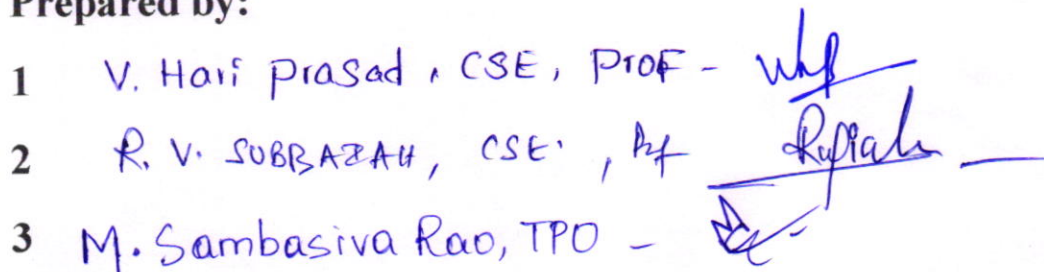 Prepared by:
1 V. Hari Prasad, CSE, Prof -
2 R. V. SUBBAZAH, CSE, Prf
3 M. Sambasiva Rao, TPO -